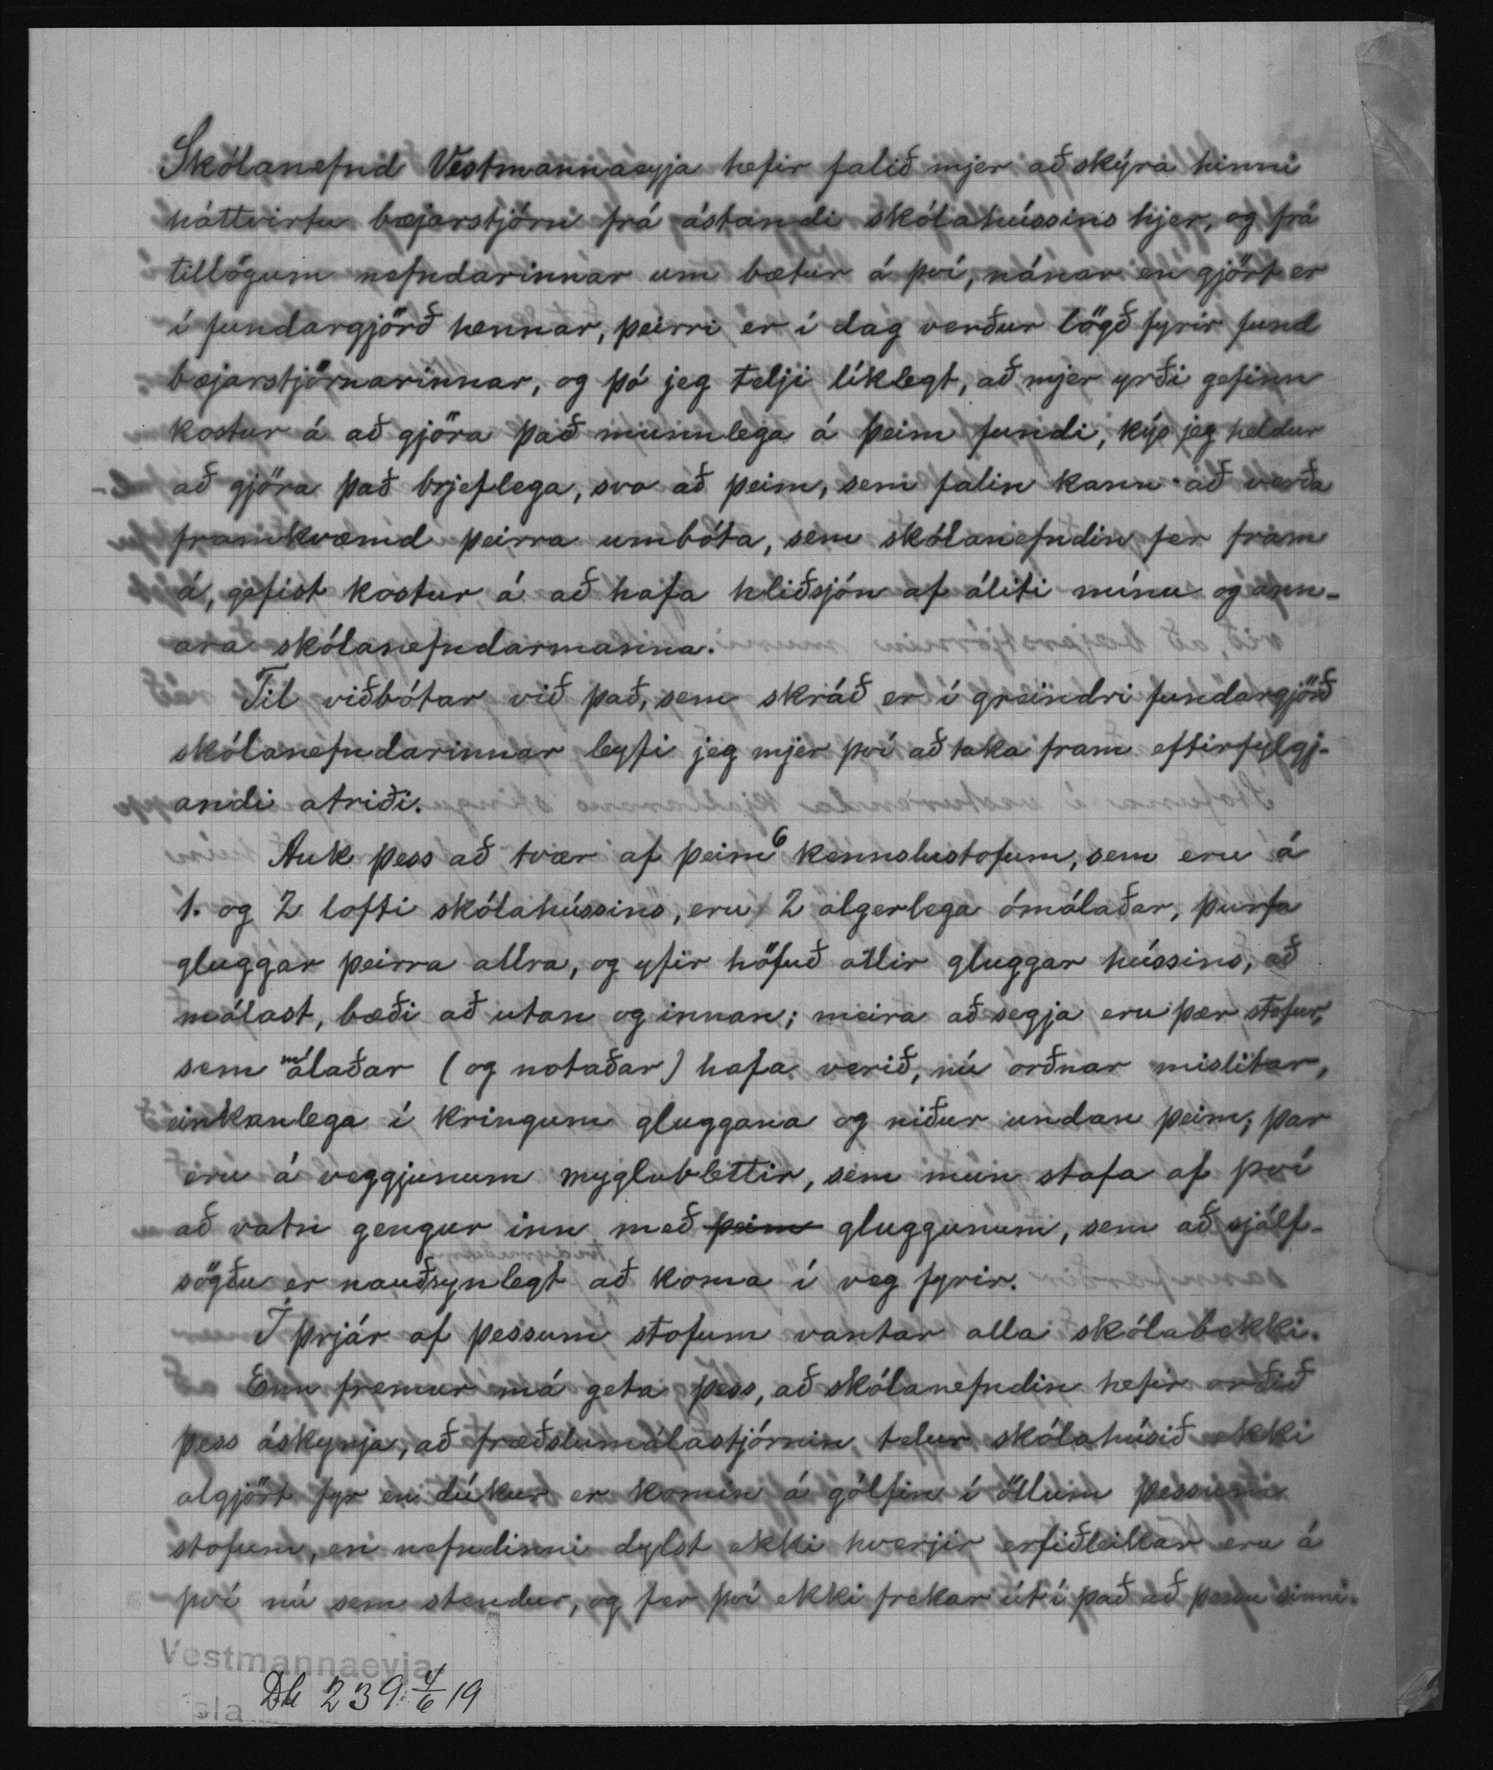 Skólanefnd Vestmannaeyja hefir falið mjer að skýra hinni
háttvirtu bæjarstjórn frá ástandi skólahússins hjer, og frá
tillögum nefndarinnar um bætur á því, nánar en gjört er
í fundargjörð hennar, þeirri er í dag verður lögð fyrir fund
bæjarstjórnarinnar, og þó jeg telji líklegt, að mjer yrði gefinn
kostur á að gjöra það munnlega á þeim fundi, kýs jeg heldur
að gjöra það brjeflega, svo að þeim, sem falin kann að verða
framkvæmd þeirra umbóta, sem skólanefndin fer fram
á, gefist kostur á að hafa hliðsjón af áliti mínu og ann-
ara skólanefndarmanna.
Til viðbótar við það, sem skráð er í greindri fundargjörð
skólanefndarinnar leyfi jeg mjer því að taka fram eftirfylgj-
andi atriði.
Auk þess að tvær af þeim 6 kennslustofum, sem eru á
1. og 2 lofti skólahússins, eru 2 algerlega ómálaðar, þurfa
gluggar þeirra allra, og yfir höfuð allir gluggar hússins, að
málast, bæði að utan og innan; meira að segja eru þær stofur,
sem málaðar (og notaðar) hafa verið, nú orðnar mislitar,
einkanlega í kringum gluggana og niður undan þeim; þar
eru á veggjunum myglublettir, sem mun stafa af því
að vatn gengur inn með þeim gluggunum, sem að sjálf-
sögðu er nauðsynlegt að koma í veg fyrir.
Í þrjár af þessum stofum vantar alla skólabekki.
Enn fremur má geta þess, að skólanefndin hefir orðið
þess áskynja, að fræðslumálastjórnin telur skólahúsið ekki
algjört fyr en dúkur er komin á gólfin í öllum þessum
stofum, en nefndinni dylst ekki hverjir erfiðleikar eru á
því nú sem stendur, og fer því ekki frekar út í það að þessu sinni.
Vestmannaeyja
sla
Db 239 4/6 19